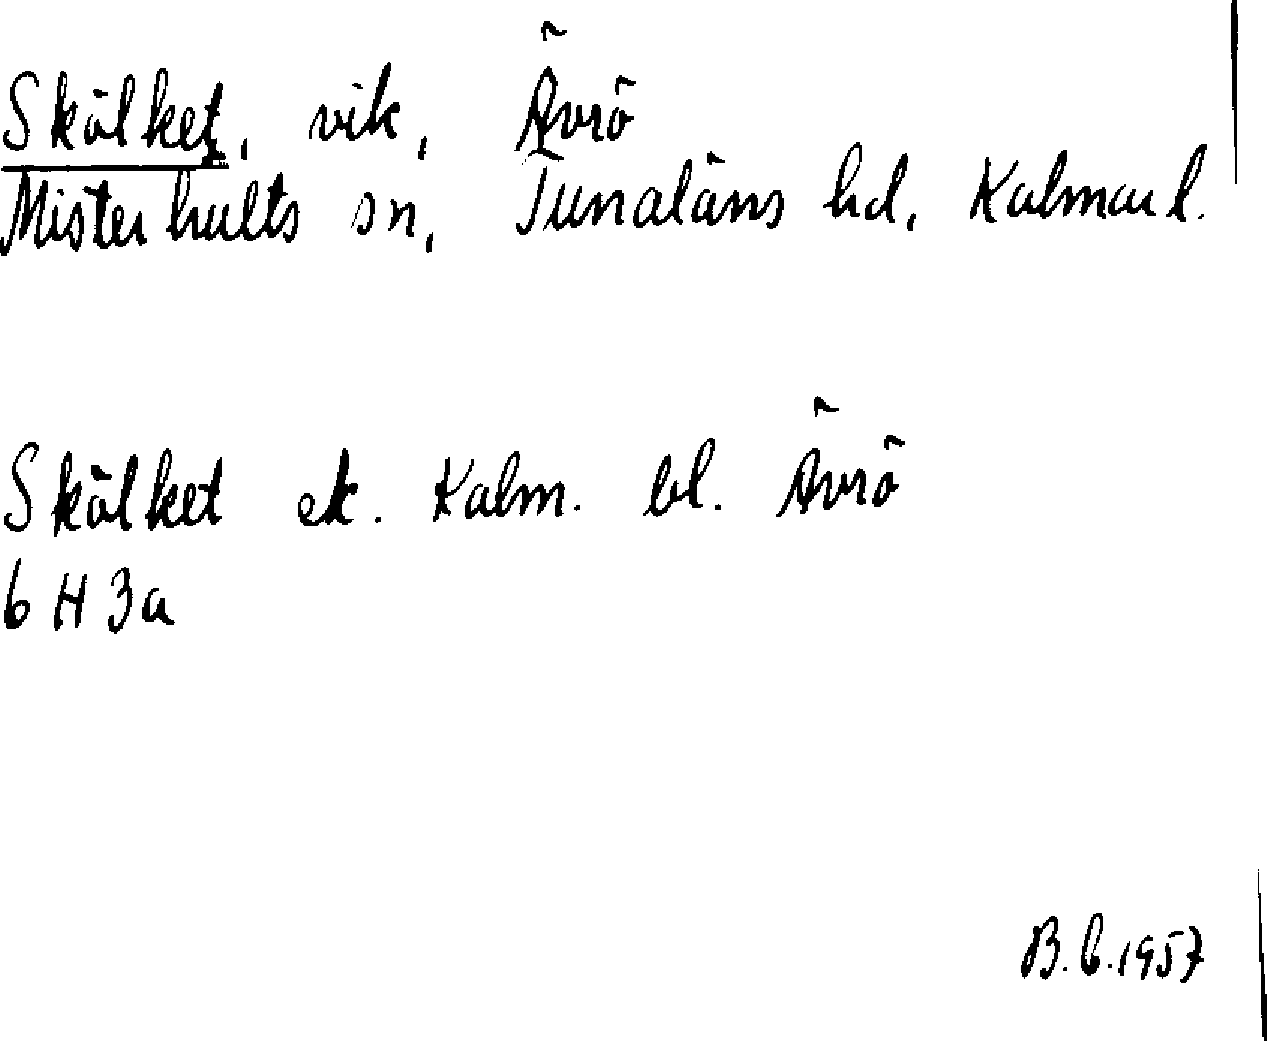 Skälket, vik, Ävrö
Misterhults sn, Tunaläns hd, Kalmar l.
Skälket ek. Kalm. bl. Ävrö
6 H 3a
B.C. 1957